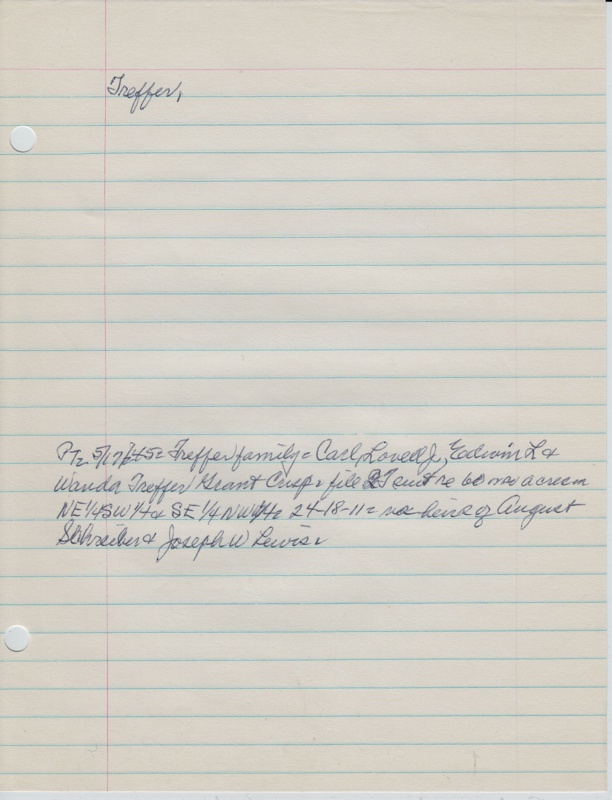 Treffer,
P/2 5/17/45= Treffer family= Carl, J, Edwin L &
Wanda Treffer Grant Crisp & file suit re 60 acres in
NE 1/4 SW 1/4 & SE 1/4 NW 1/4 24-18-11= vs heirs of August
Schreiber & Joseph W Lewis.